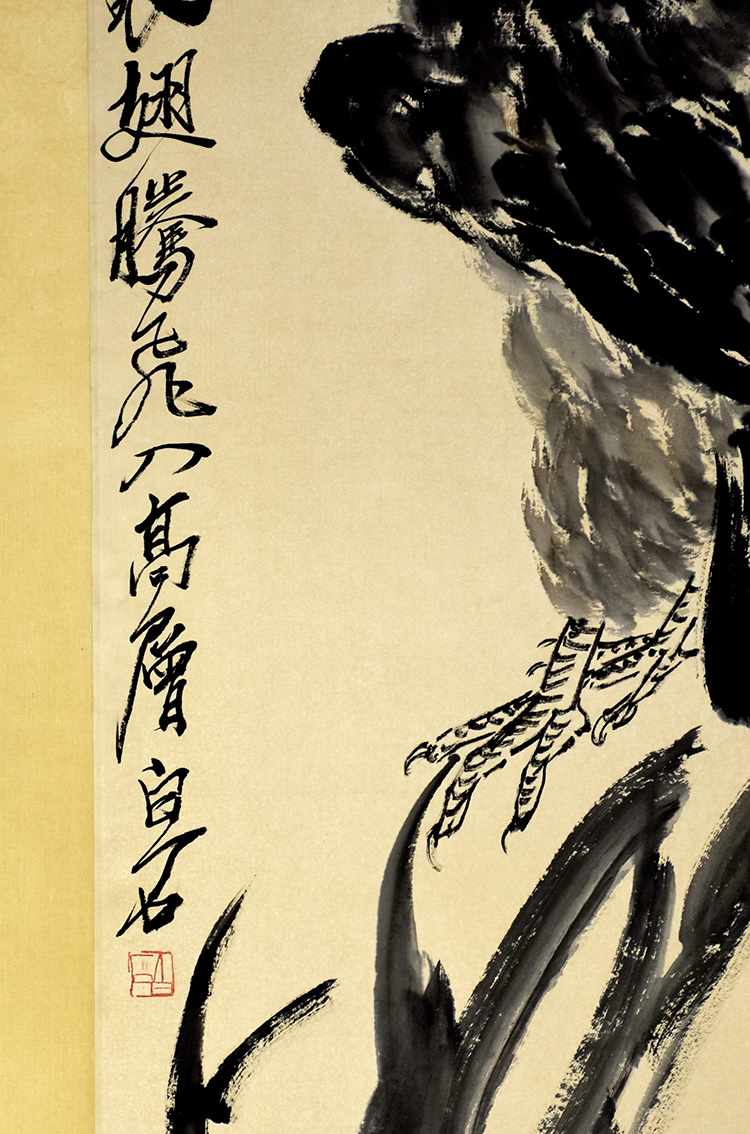 翅騰飛入高層白石